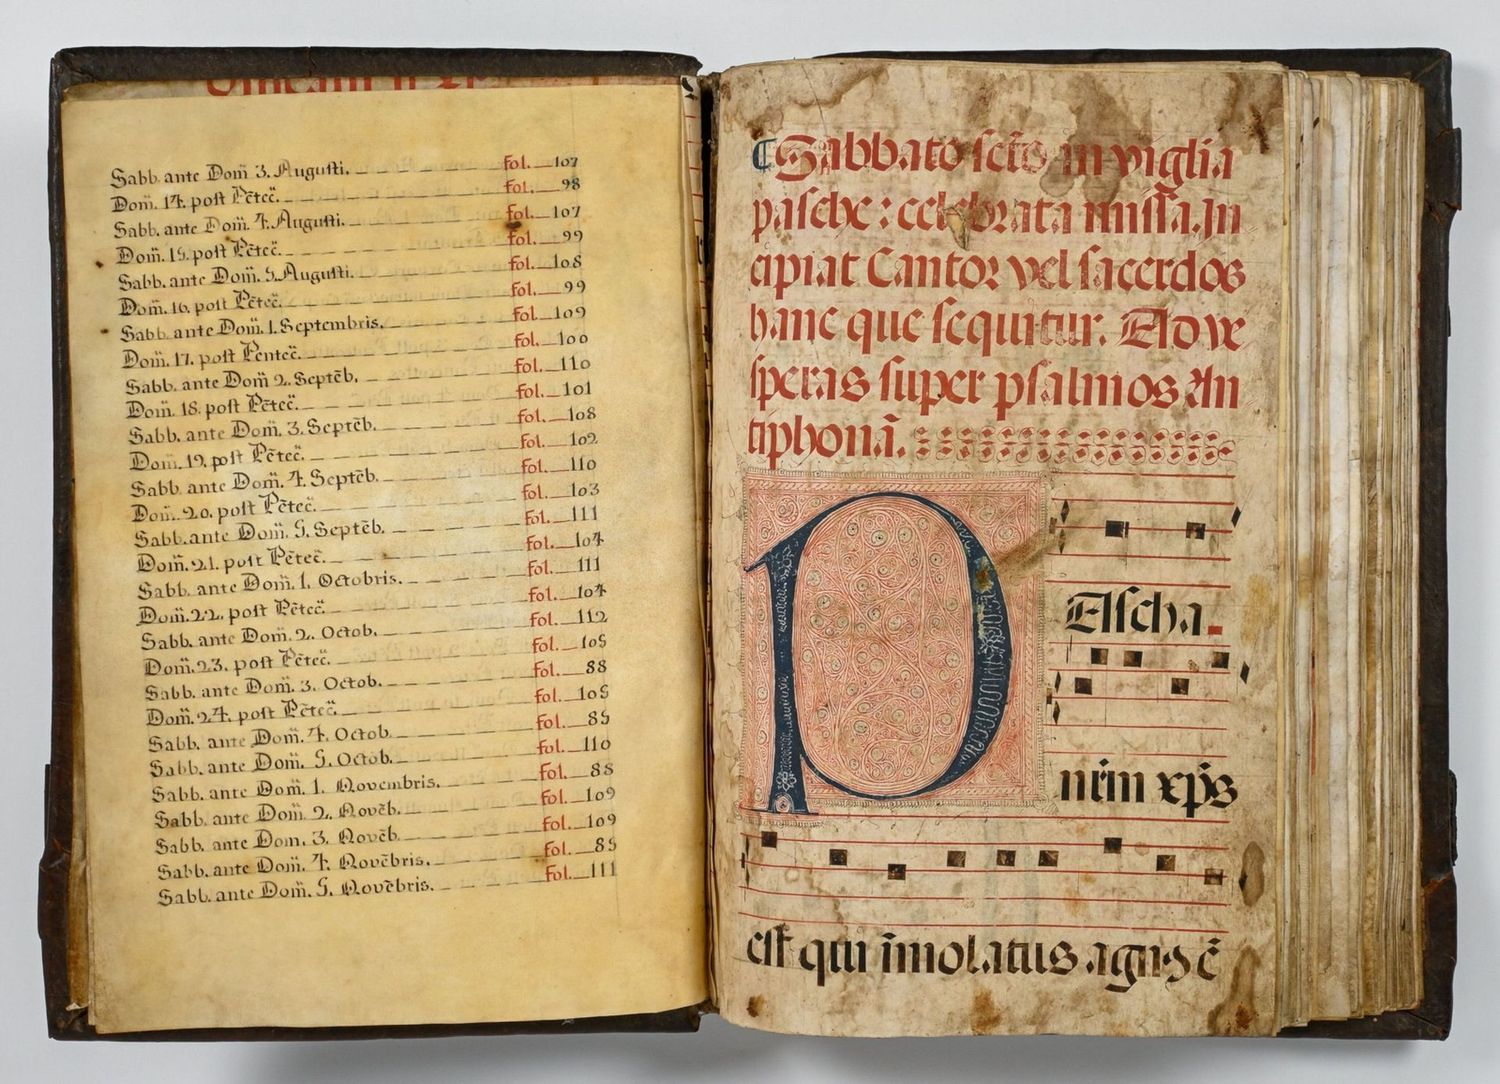 Sabb. ante Dom̃ 3. Augusti. fol. 107
Dom̃. 14. post Pẽtec̃. fol. 98
Sabb. ante Dom̃ 4. Augusti. fol. 107
Dom̃. 15. post Pẽtec̃. fol. 99
Sabb. ante Dom̃. 5. Augusti. fol. 108
Dom̃. 16. post Pẽtec̃. fol. 99
Sabb. ante Dom̃. 1. Septembris. fol. 109
Dom̃. 17. post Pentec̃. fol. 100
Sabb. ante Dom̃ 2. Septẽb. fol. 110
Dom̃. 18. post Pẽtec̃. fol. 101
Sabb. ante Dom̃. 3. Septẽb. fol. 108
Dom̃. 19. post Pẽtec̃. fol. 102
Sabb. ante Dom̃. 4. Septẽb. fol. 110
Dom̃. 20. post Pẽtec̃. fol. 103
Sabb. ante Dom̃. 5. Septẽb. fol. 111
Dom̃. 21. post Pẽtec̃. fol. 104
Sabb. ante Dom̃. 1. Octobris. fol. 111
Dom̃. 22. post Pẽtec̃. fol. 104
Sabb. ante Dom̃. 2. Octob. fol. 112
Dom̃. 23. post Pẽtec̃. fol. 105
Sabb. ante Dom̃. 3. Octob. fol. 88
Dom̃. 24. post Pẽtec̃. fol. 105
Sabb. ante Dom̃. 4. Octob. fol. 85
Sabb. ante Dom̃. 5. Octob. fol. 110
Sabb. ante Dom̃. 1. Novembris. fol. 88
Sabb. ante Dom̃. 2. Novẽb. fol. 109
Sabb. ante Dom. 3. Novẽb. fol. 109
Sabb. ante Dom̃. 4. Novẽbris. fol. 85
Sabb. ante Dom̃. 5. Novẽbris. fol. 111
Sabbato sctõ in vigilia
pasche : celebrata missa. In
cipiat Cantor vel sacerdos
hanc que sequitur. Ad ve
speras super psalmos An
tiphonã.
PAscha
nr̃m xp̃s
est qui ĩmolatus agnus ẽ